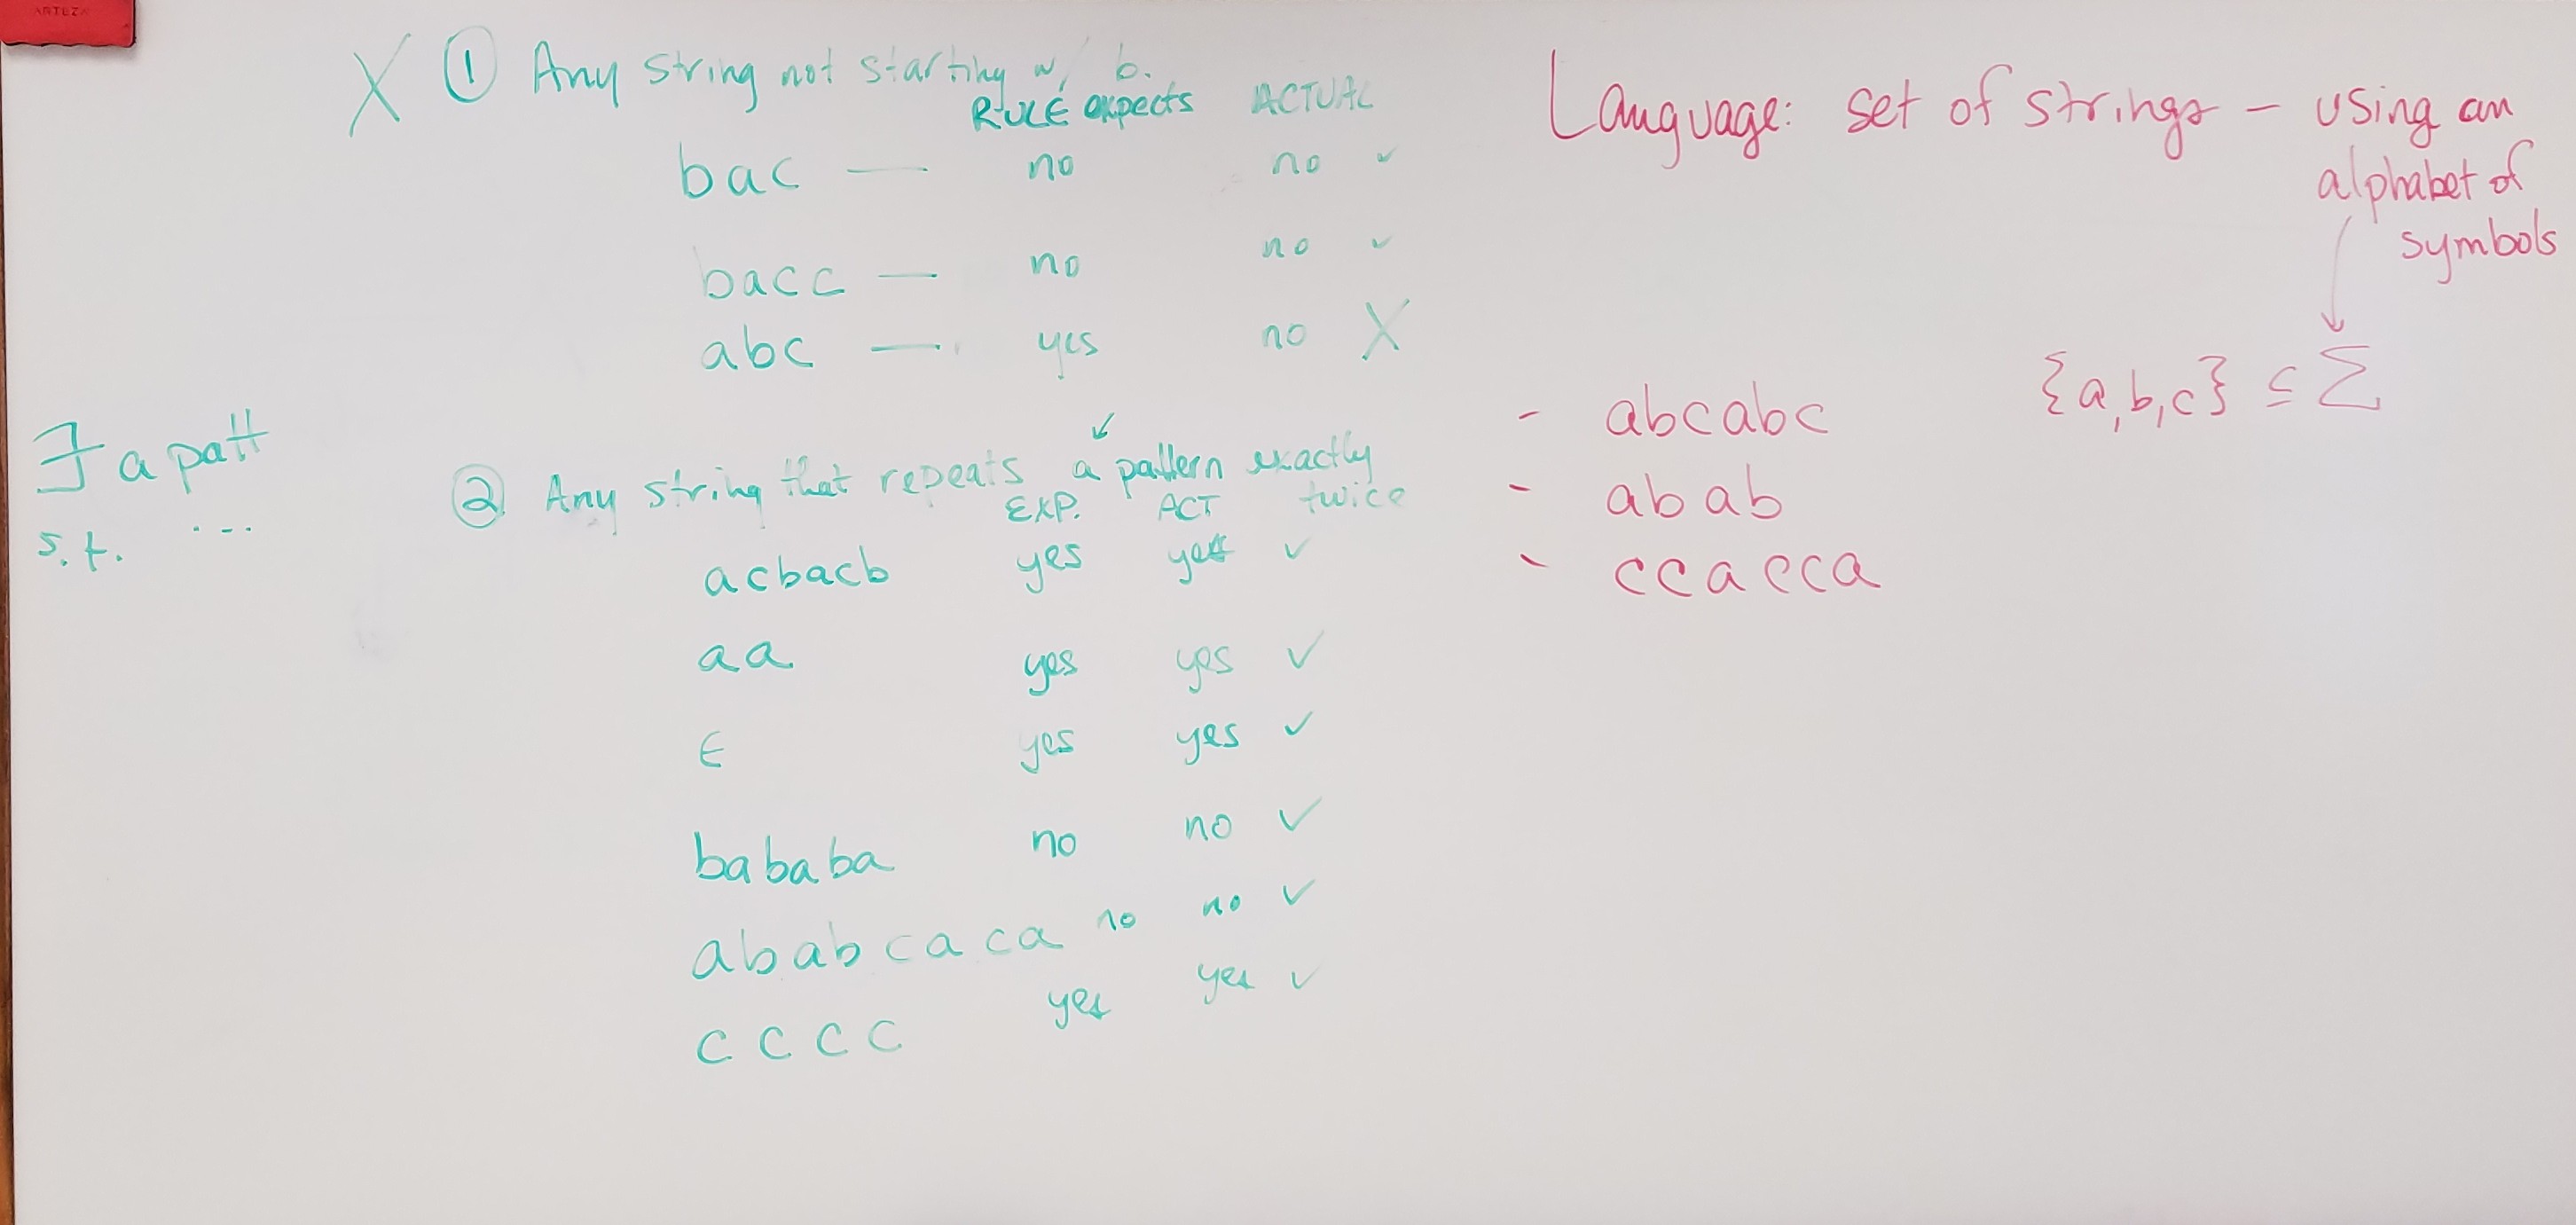 ARTEZA
X ① Any string not starting w/ b.
RULE expects ACTUAL
bac — no no ✓
bacc — no no ✓
abc — yes no X
∃ a patt
s.t. ...
↙
② Any string that repeats a pattern exactly
twice
EXP. ACT
acbacb yes yes ✓
aa yes yes ✓
ϵ yes yes ✓
bababa no no ✓
ababcaca no no ✓
cccc yes yes ✓
Language: set of strings – using an
alphabet of
symbols
↓
{a,b,c} ⊆ Σ
- abcabc
- abab
- ccacca